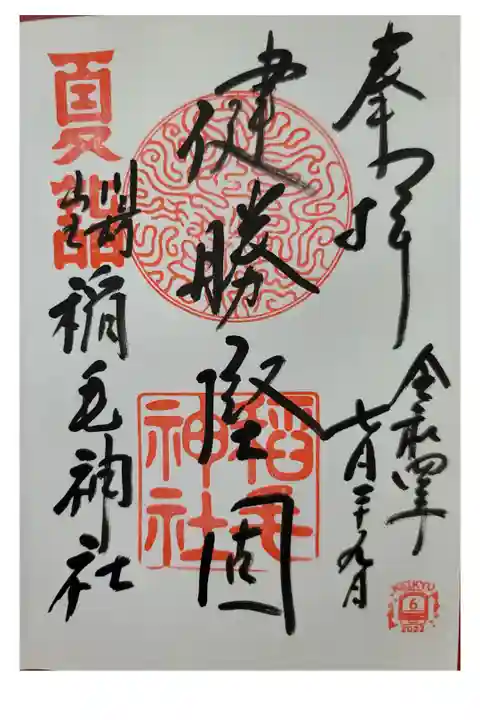 奉拝
令和四年
七月二十九日
健勝堅固
夏詣
川崎 稲毛神社
稲毛
神社
KEIKYU
6
2022